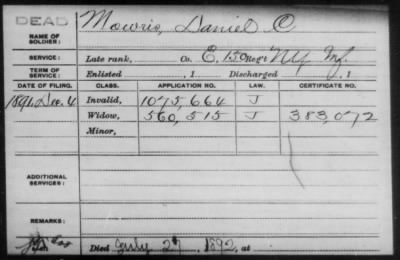 DEAD
NAME OF SOLDIER: Mowris, Daniel O
SERVICE: Late rank, Co. E, 150 Reg't NY Inf.
TERM OF SERVICE: Enlisted , 1 Discharged , 1
DATE OF FILING. CLASS. APPLICATION NO. LAW. CERTIFICATE NO.
1891, Dec. 4 Invalid, 1075,664 J
Widow, 560,515 J 383,072
Minor,
ADDITIONAL SERVICES:
REMARKS:
Died July 27, 1892, at